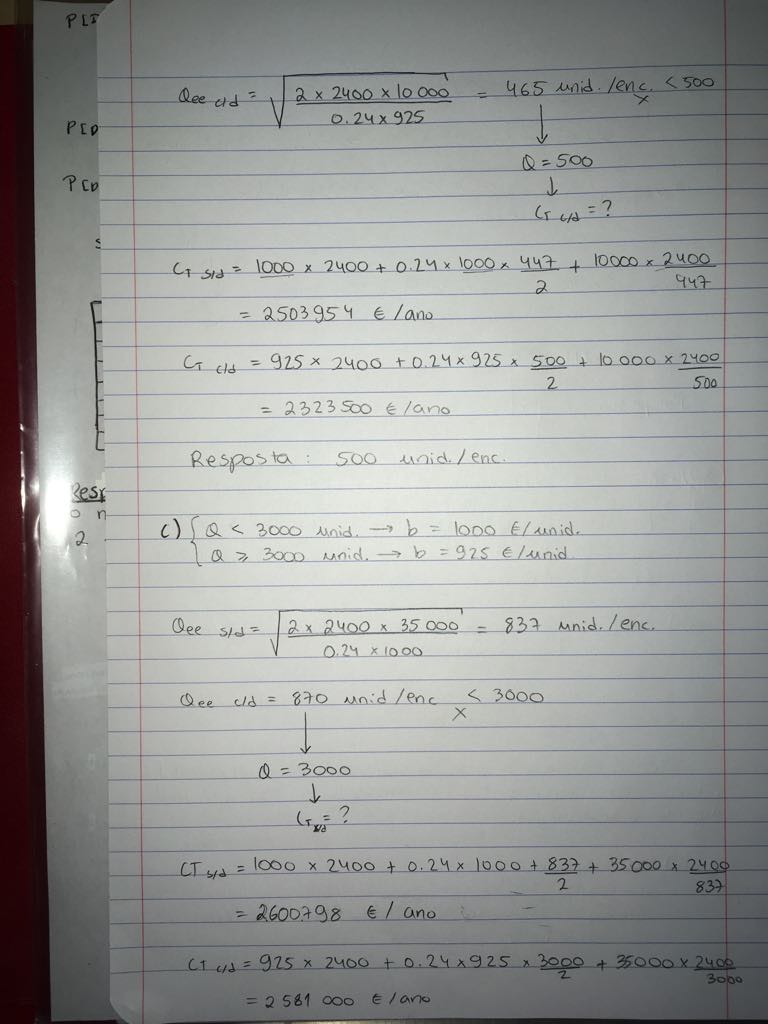 P[I
P[D
P[D
s
Resp
o n
2
Qee c/d = √(2 x 2400 x 10 000 / 0.24 x 925) = 465 unid./enc. < 500
x
↓
Q = 500
↓
CT c/d = ?
CT s/d = 1000 x 2400 + 0.24 x 1000 x 447/2 + 10000 x 2400/447
= 2503954 €/ano
CT c/d = 925 x 2400 + 0.24 x 925 x 500/2 + 10 000 x 2400/500
= 2323500 €/ano
Resposta : 500 unid./enc.
c) { Q < 3000 unid. → b = 1000 €/unid.
Q ⩾ 3000 unid. → b = 925 €/unid
Qee s/d = √(2 x 2400 x 35 000 / 0.24 x 1000) = 837 unid./enc.
Qee c/d = 870 unid/enc < 3000
x
↓
Q = 3000
↓
= ?
CT s/d = 1000 x 2400 + 0.24 x 1000 + 837/2 + 35000 x 2400/837
= 2600798 €/ ano
CT c/d = 925 x 2400 + 0.24 x 925 x 3000/2 + 35000 x 2400/3000
= 2 581 000 €/ano